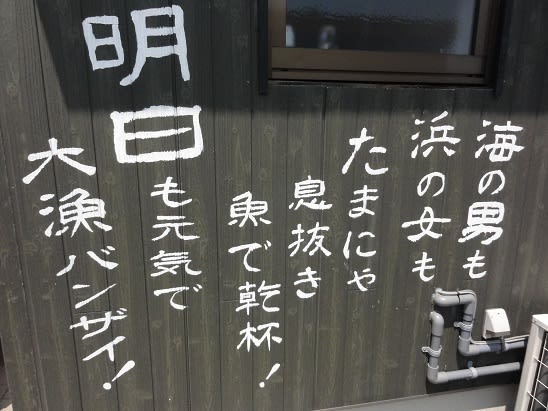 海の男も
浜の女も
たまにゃ
息抜き
魚で乾杯！
明日も元気で
大漁バンザイ！